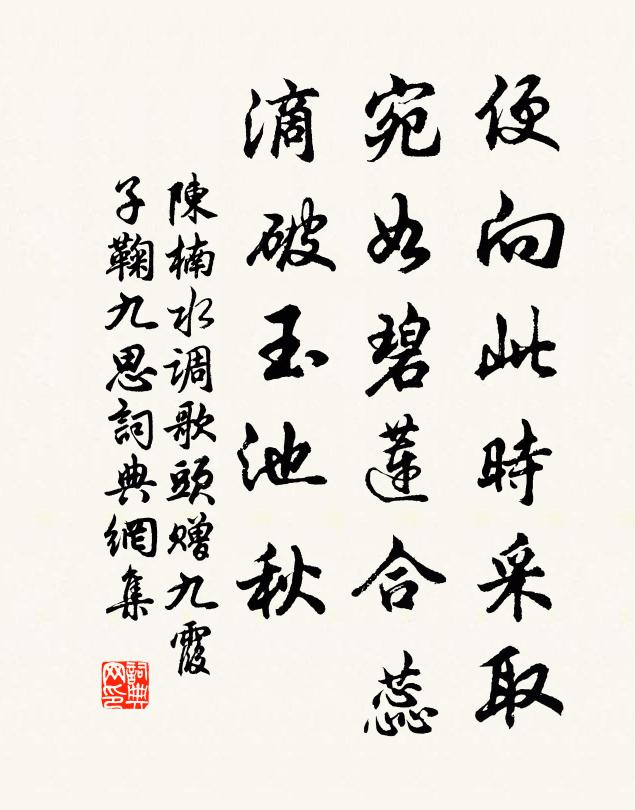 便向此時采取
宛如碧蓮合蕊
滴破玉池秋
陳楠水调歌頭赠九霞
子鞠九思詞典網集
詞典网印